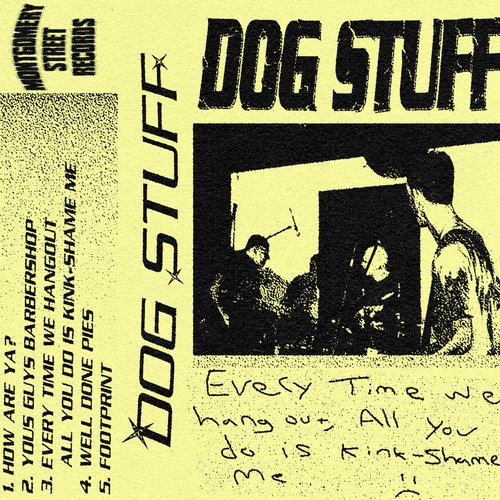 MONTGOMERY
STREET
RECORDS
1. HOW ARE YA?
2. YOUS GUYS BARBERSHOP
3. EVERY TIME WE HANGOUT
ALL YOU DO IS KINK-SHAME ME
4. WELL DONE PIES
5. FOOTPRINT
DOG STUFF
DOG STUFF
Every Time we
hang out, All You
do is Kink-Shame
Me :(